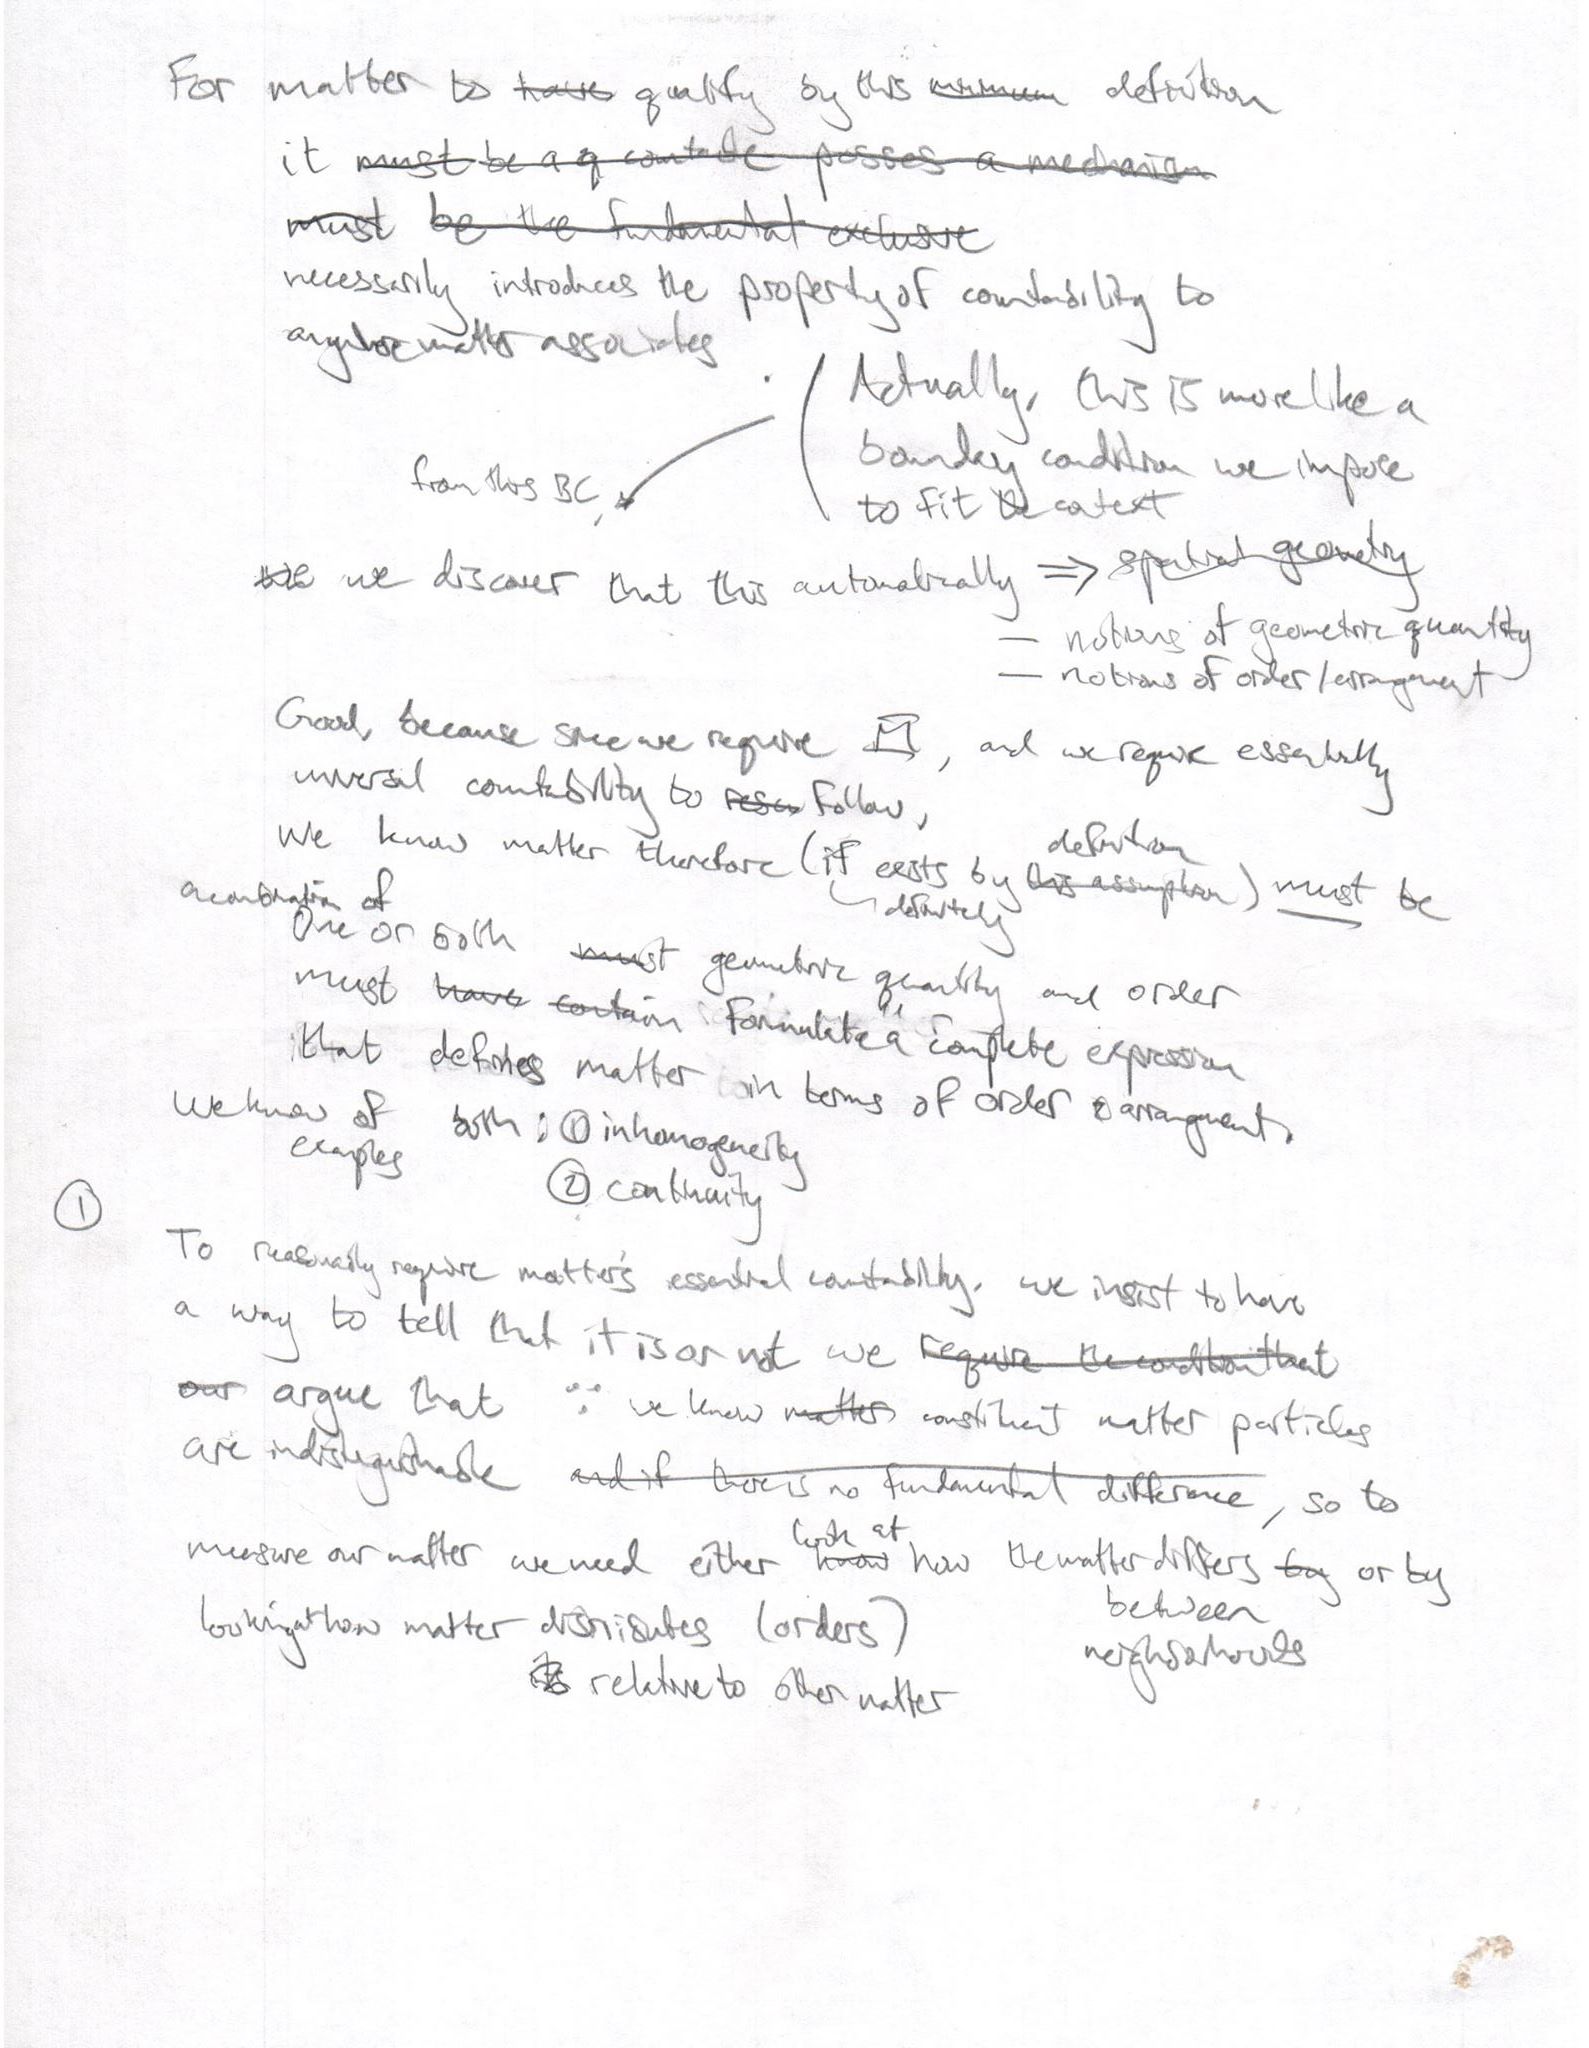 For matter to have qualify by this minimum definition
it must be a q countable posses a mechanism
must be the fundamental exclusive
necessarily introduces the property of countability to
matter associates
Actually, this is more like a
boundary condition we impose
to fit the context
from this BC,
we discover that this automatically ⇒ spatial geometry
— notions of geometric quantity
— notions of order/arrangement
Good, because since we require , and we require essentially
universal countability to follow,
definition
We know matter therefore (if exists by this assumption) must be
definitely
a combination of
One or both must geometric quantity and order
must have contain formulate a "complete expression
that defines matter in terms of order & arrangment.
We know of both : ① inhomogeneity
examples
② continuity
①
To reasonably require matter's essential countability. we insist to have
a way to tell that it is or not we require the condition that
our argue that ∵ we know matter constituent matter particles
are indistinguishable and if there is no fundamental difference, so to
look at
measure our matter we need either know how the matter differs by or by
between
neighborhoods
looking at how matter distributes (orders)
relative to other matter